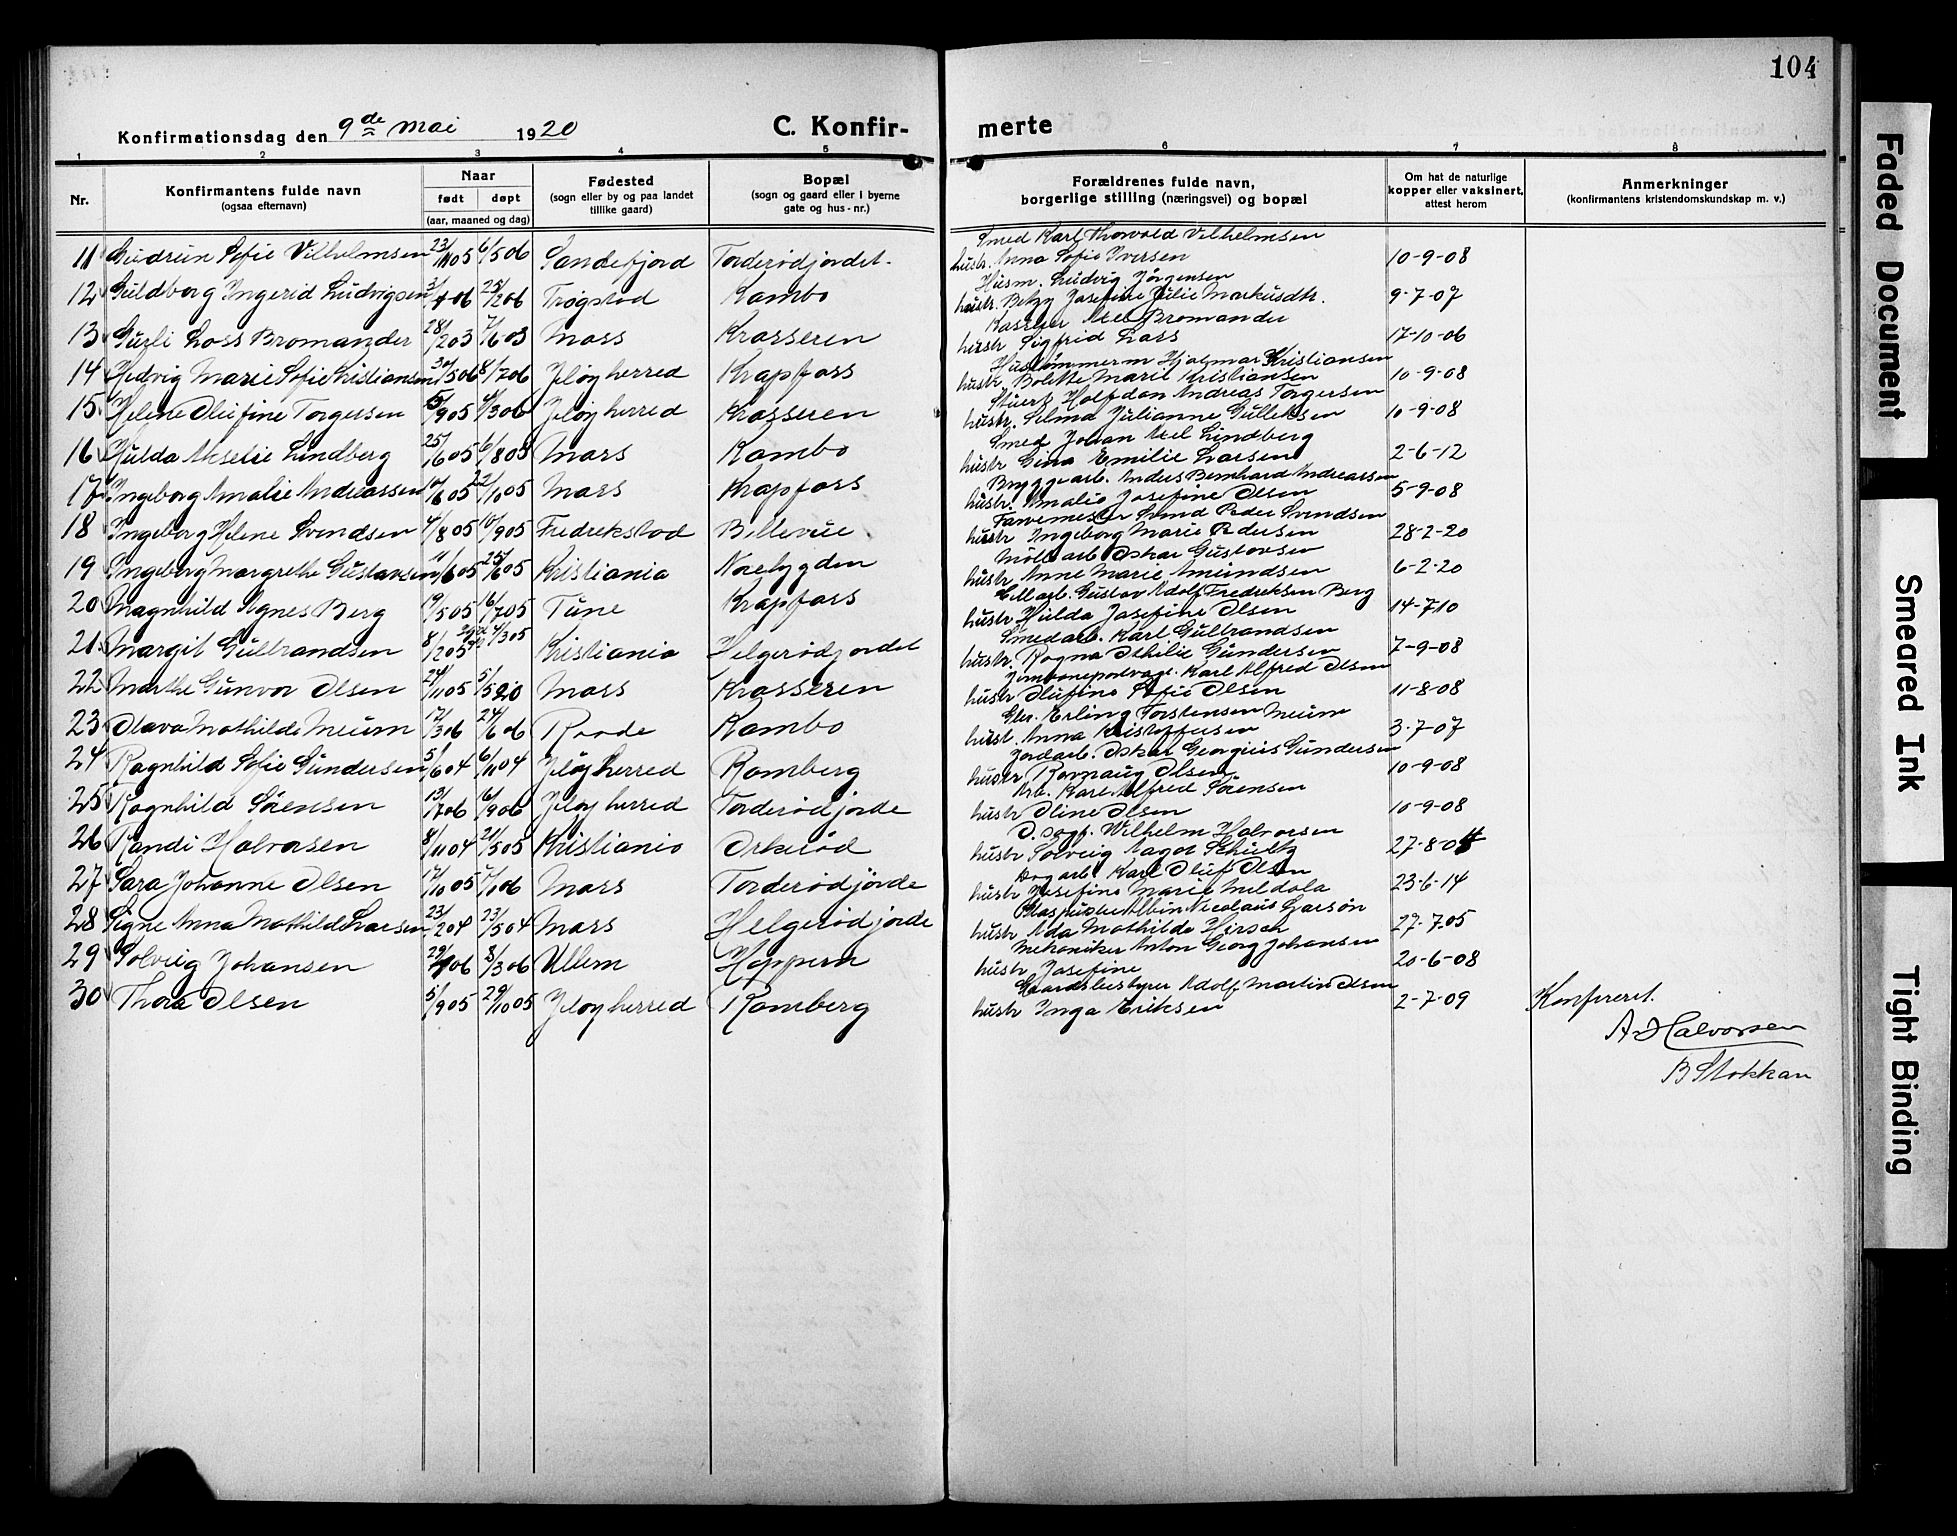 104
Konfirmationsdag den 9de mai 1920
C. Konfir-
merte
1 2 3 4 5 6 7 8
Nr.
Konfirmantens fulde navn
(ogsaa efternavn)
Naar
født døpt
(aar, maaned og dag)
Fødested
(sogn eller by og paa landet
tillike gaard)
Bopæl
(sogn og gaard eller i byerne
gate og hus-nr.)
Forældrenes fulde navn,
borgerlige stilling (næringsvei) og bopæl
Om hat de naturlige
kopper eller vaksinert,
attest herom
Anmerkninger
(konfirmantens kristendomskundskap m. v.)
Smed Karl Thorvald Vilhelmsen
11 Gudrun Sofie Vilhelmsen 23/11 05 6/5 06 Sandefjord Torderødjordet. hustr. Anna Sofie Iversen 10-9-08
Husm. Ludvig Jørgensen
12 Guldborg Ingerid Ludvigsen 3/ 06 25/2 06 Trøgstad Kambo hustr. Betzy Josefine Julie Markusdtr. 9-7-07
Kasserer Axel Bromander
13 Gurli Loss Bromander 28/2 03 7/6 03 Moss Krosseren hustr Sigfrid Lass 17-10-06
Hustømmerm Hjalmar Kristiansen
14 Hedvig Marie Sofie Kristiansen 30/5 06 8/7 06 Jeløy herred Krapfoss hustr. Bolette Marie Kristiansen 10-9-08
Stuert Halfdan Andreas Torgersen
15 Helene Olufine Torgersen 5/9 05 4/3 06 Jeløy herred Krosseren hustr. Selma Julianne Gulliksen 10-9-08
Smed Johan Axel Lindberg
16 Hulda Akselie Lindberg 25/6 05 6/8 05 Moss Kambo hustr Gina Emilie Larsen 2-6-12
Bryggearb. Anders Bernhard Andreassen
17 Ingeborg Amalie Andreassen 10/6 05 22/10 05 Moss Krapfoss hustr. Amalie Josefine Olsen 5-9-08
Farvemester Svend Peder Svendsen
18 Ingeborg Helene Svendsen 4/8 05 10/9 05 Fredrekstad Bellevue hustr Ingeborg Marie Pedersen 28-2-20
Møllearb Oskar Gustavsen
19 Ingeborg Margrethe Gustavsen 11/6 05 25/6 05 Kristiania Norebygden hustr Anne Marie Amundsen 6-2-20
Cellarb. Gustav Adolf Fredriksen Berg
20 Magnhild Agnes Berg 19/5 05 16/7 05 Tune Krapfoss hustr Hulda Josefine Olsen 14-7-10
Smedarb. Karl Gulbrandsen
21. Margit Gulbrandsen 8/12 05 4/3 05 Kristiania Helgerødjordet hustr. Ragna Othilie Gundersen 7-9-08
Karl Alfred Olsen
22 Marthe Gunvor Olsen 24/11 05 5/5 20 Moss Krosseren hustr Olufine Sofie Olsen 11-8-08
Erling Torstensen Meum
23 Olava Mathilde Meum 17/3 06 24/6 06 Raade Kambo hust. Anna Kristoffersen 3-7-07
Jordarb. Oskar Georgius Gundersen
24 Ragnhild Sofie Gundersen 5/6 04 6/11 04 Jeløy herred Ramberg hustr Ravnaug Olsen 10-9-08
Arb. Karl Alfred Sørensen
25 Ragnhild Sørensen 13/7 06 16/9 06 Jeløy herred Torderødjorde hustr Oline Olsen 10-9-08
D. sagf. Wilhelm Halvorsen
26 Randi Halvorsen 8/11 04 21/5 05 Kristiania Orkerød hustr Solveig Aagot Schultz 27-8-04
Karl Oluf Olsen
27 Sara Johanne Olsen 17/10 05 7/1 06 Moss Torderødjørde hustr Josefine Marie Meldola 23-6-14
Glaspuster Albin Nicolaus Larsøn
28 Signe Anna Mathilde Larsen 23/2 04 23/5 04 Moss Helgerødjorde hustr Ada Mathilde Hirsch 27-7-05
Mekaniker Anton Georg Johansen
29 Solveig Johansen 29/ 06 8/3 06 Ullern Hoppern hustr Josefine 20-6-08
Gaardsbestyrer Adolf Martin Olsen
30 Thora Olsen 5/9 05 29/10 05 Jeløy herred Ramberg hustr Inga Eriksen 2-7-09 Konfereret.
A. Halvorsen
B Stokkan
Faded Document
Smeared Ink
Tight Binding